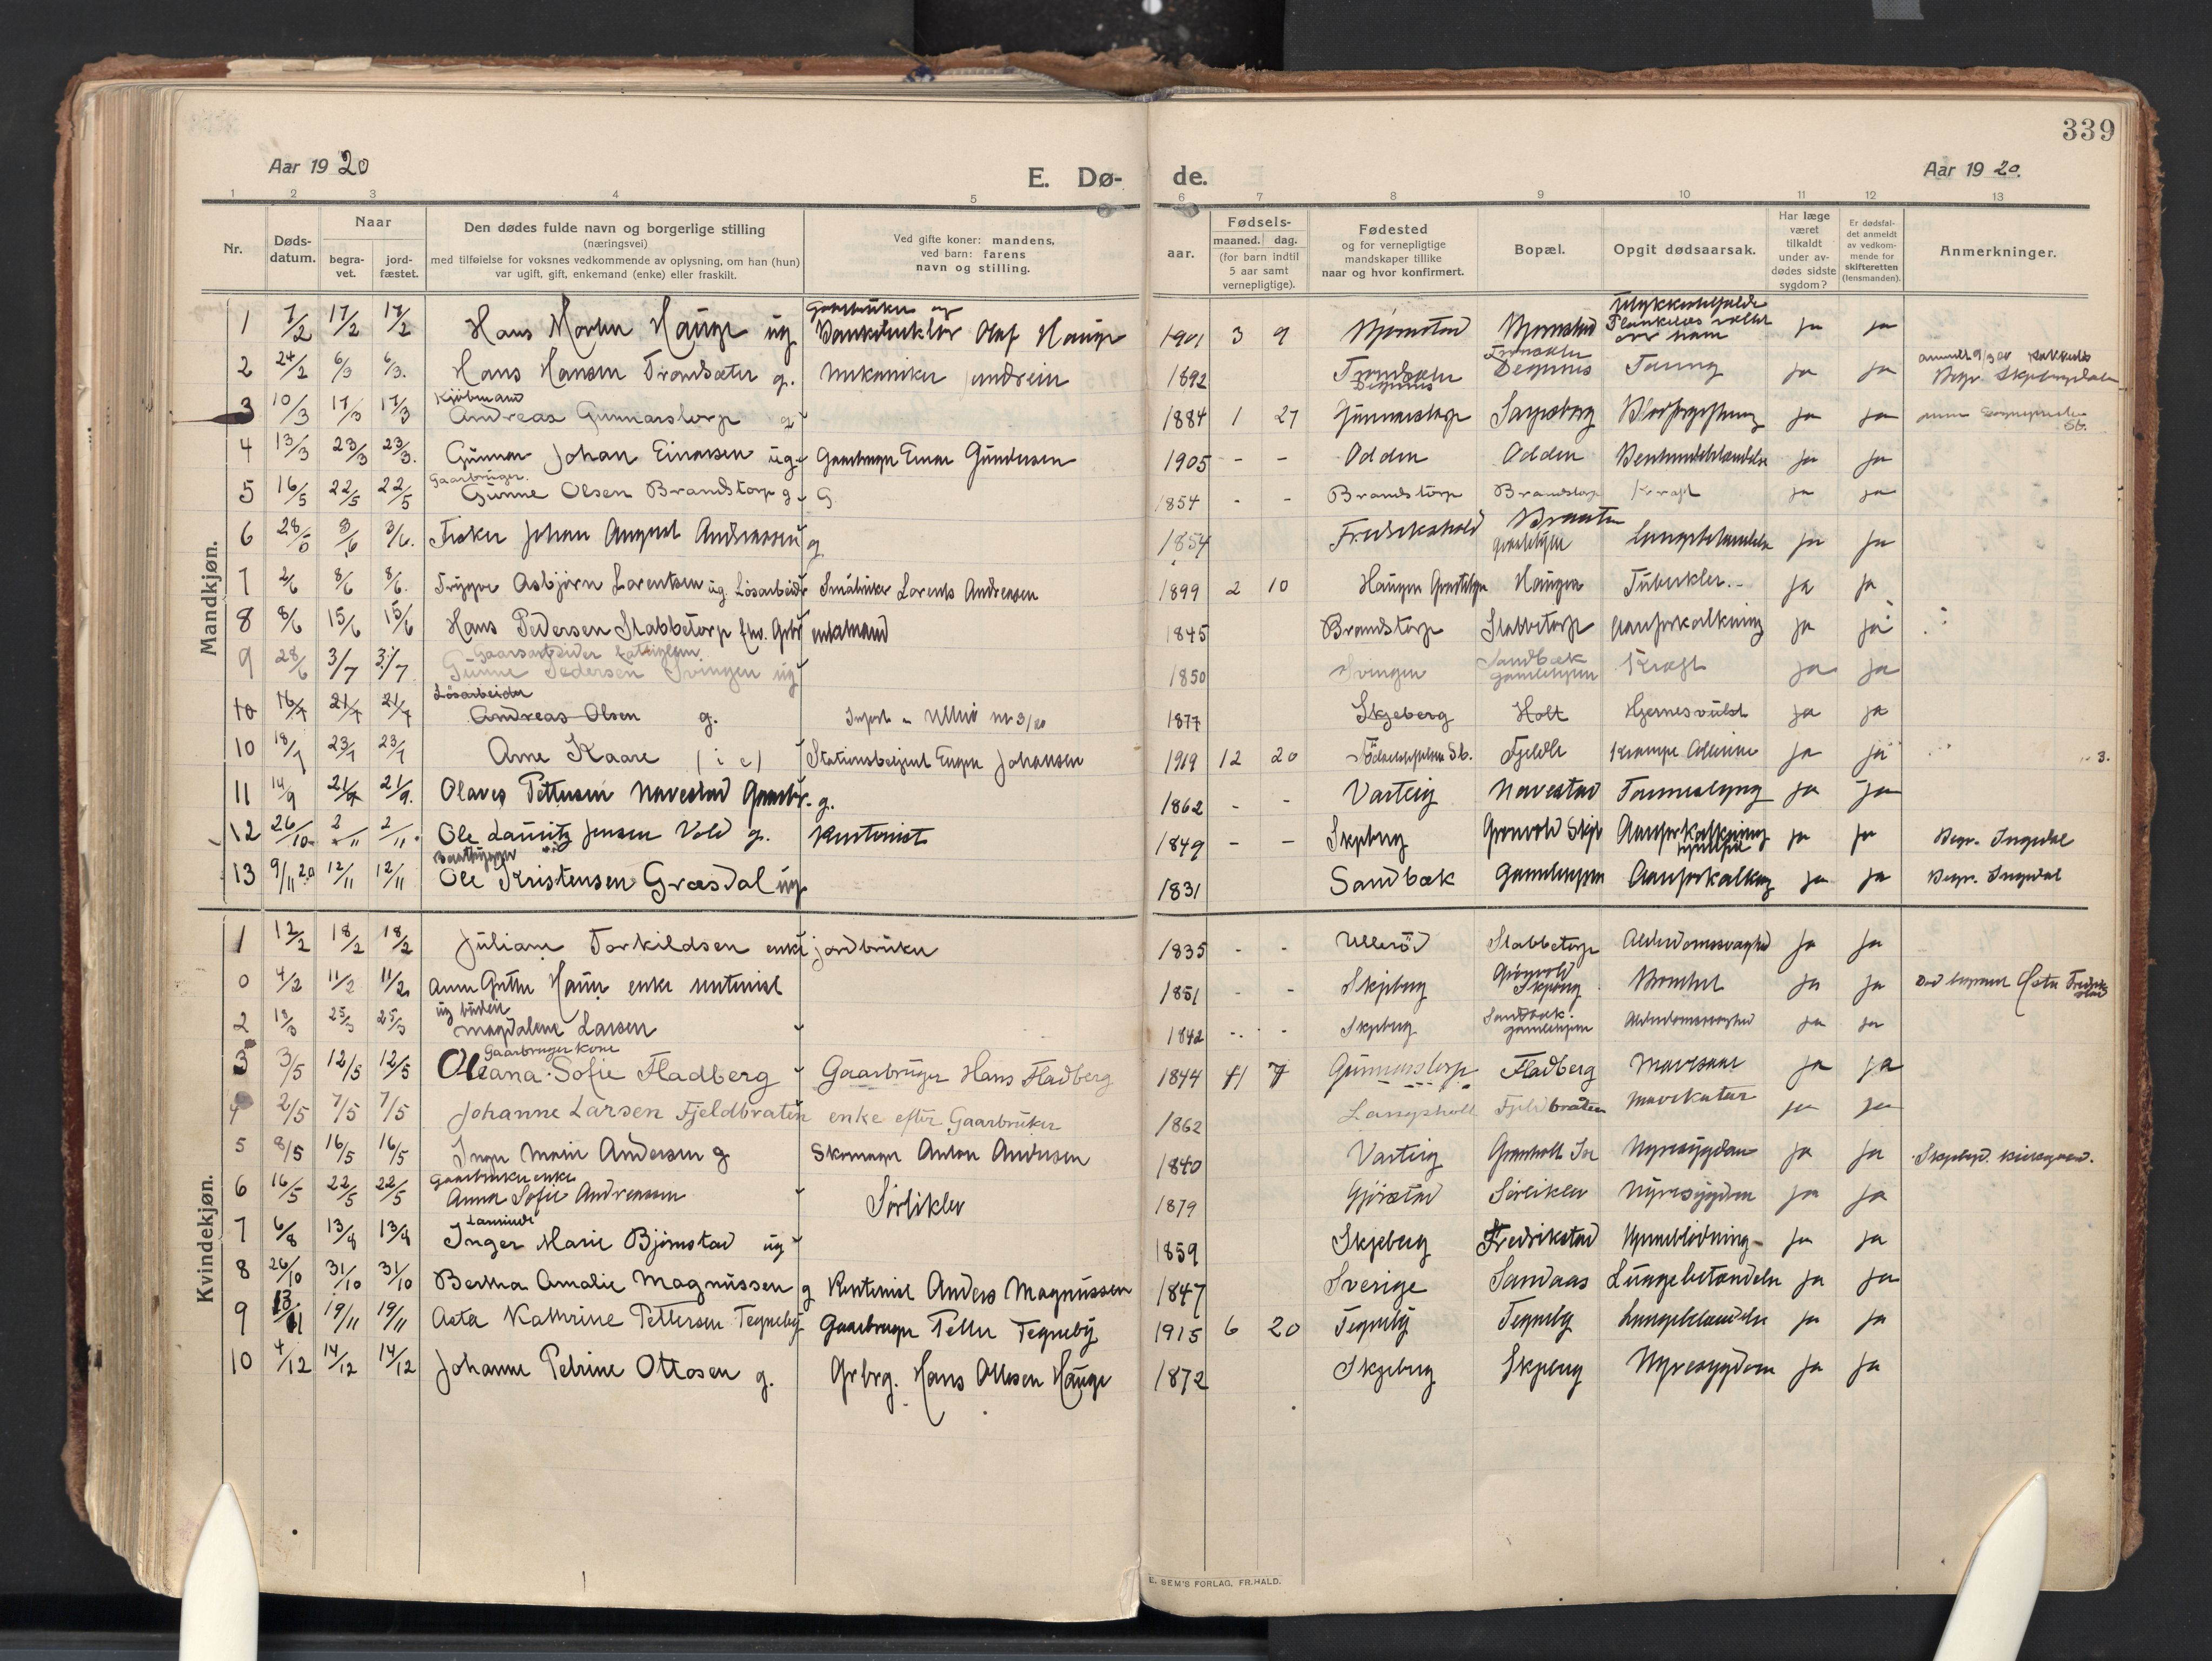 339
Aar 19 20
E. Dø- de.
Aar 19 20.
1 2 3 4 5 6 7 8 9 10 11 12 13
Nr.
Døds-
datum.
Naar
begra-
vet.
jord-
fæstet.
Den dødes fulde navn og borgerlige stilling
(næringsvei)
med tilføielse for voksnes vedkommende av oplysning, om han (hun)
var ugift, gift, enkemand (enke) eller fraskilt.
Ved gifte koner: mandens,
ved barn: farens
navn og stilling.
aar.
Fødsels-
maaned. dag.
(for barn indtil
5 aar samt
vernepligtige).
Fødested
og for vernepligtige
mandskaper tillike
naar og hvor konfirmert.
Bopæl.
Opgit dødsaarsak.
Har læge
været
tilkaldt
under av-
dødes sidste
sygdom?
Er dødsfal-
det anmeldt
av vedkom-
mende for
skifteretten
(lensmanden).
Anmerkninger.
Mandkjøn.
1 7/2 17/2 17/2 Hans Martin Hauge ug Olaf Hauge 1901 3 9 Bjørnstad Bjørnstad ja ja
2 24/2 6/3 6/3. Hans Hansen Tromsæter g. mekaniker 1892 Tæring ja ja
Kjøbmand
3 10/3 17/3 17/3 Andreas Gunnarstorp g 1884 1 27 Gunnarstorp Sarpsborg Blodforgiftning ja ja
4 13/3 23/3 23/3. Gunnar Johan Einarsen ug. Einar Gundersen 1905 - - Odden Odden ja ja
Gaarbruger.
5 16/5 22/5 22/5 Gunne Olsen Brandstorp g G. 1854 - - Brandstorp Brandstorp Kræft ja ja
6 28/5 3/6 3/6. Fisker Johan August Andreassen g 1854 Fredrikshald Braaten Lungebetændelse ja ja
7 2/6 8/6 8/6. Trygve Asbjørn Lorentsen ug. Løsarbeider Småbruker Lorents Andreasen 1899 2 10 Haugen Haugen Tuberkler. ja ja
8 8/6 15/6 15/6 Hans Pedersen Stabbetorp enkemand 1845 Brandstorp Stabbetorp Aareforkalkning ja ja
9 28/6 3/7 3/7 Gunne Pedersen Svingen ug 1850 Svingen Sandbæk Kræft ja ja
Løsarbeider
10 16/7 21/7 21/7 Andreas Olsen g. 1877 Skjeberg Holt ja ja
10 18/7 23/7 23/7 Arne Kaare Johansen 1919 12 20 Fjeldle ja ja
11 14/9 21/9 21/9. Olaves Pettersen Navestad g. 1862 - - Varteig Navestad ja ja
12 26/10 2/11 2/11. Ole Lauritz Jensen Vold g. Rentenist 1849 - - Skjeberg Aareforkalkning ja ja Begr. Ingedal
13 9/11 20 12/11 12/11 Ole Kristensen Græsdal ug 1831 Sandbæk Gamlebyen Aareforkalkning ja ja Begr. Ingedal
Kvindekjøn.
1 12/2 18/2 18/2 Juliane Torkildsen enke jordbruker 1835 - - Ullerød Stabbetorp Alderdomssvaghed ja ja
0 4/2 11/2 11/2 enke rentenist 1851 - - Skjeberg Skjeberg ja ja
2 25/3 25/3 Magdalene Larsen 1842 - - Skjeberg Sandbæk Gamlebyen Alderdomssvaghed ja ja
Gaarbruger kone
3 3/5 12/5 12/5 Oleana Sofie Fladberg Gaarbruger Hans Fladberg 1844 11 7 Gunnarstorp Fladberg Mavesaar ja ja
4 2/5 7/5 7/5 Johanne Larsen Fjeldbraten enke efter Gaarbruker 1862 Langsholt Fjeldbraten Mavekatar ja ja
5 8/5 16/5 16/5 Inger Marie Andersen g Skomager Anton Andersen 1840 Varteig Nyresygdom ja ja
Gaarbruker enke
6 16/5 22/5 22/5 Anna Sofie Andreassen Sørliklev 1879 Gjørstad Sørliklev Nyresygdom ja ja
7 6/8 13/8 13/8 Inger Marie Bjørnstad ug 1859 Skjeberg Fredrikstad Hjerneblødning ja ja
8 26/10 31/10 31/10 Bertha Amalie Magnussen g Rentenist Anders Magnussen 1847 Sverige Sandaas Lungebetændelse ja ja
9 13/11 19/11 19/11 Asta Kathrine Pettersen Tegneby Gaarbruger Petter Tegneby 1915 6 20 Tegneby Tegneby Lungebetændelse ja ja
10 4/12 14/12 14/12 Johanne Petrine Ottosen g. Grbrg. Hans Ottosen Hauge 1872 Skjeberg Skjeberg Nyresygdom ja ja
E. SEM'S FORLAG, FR.HALD.